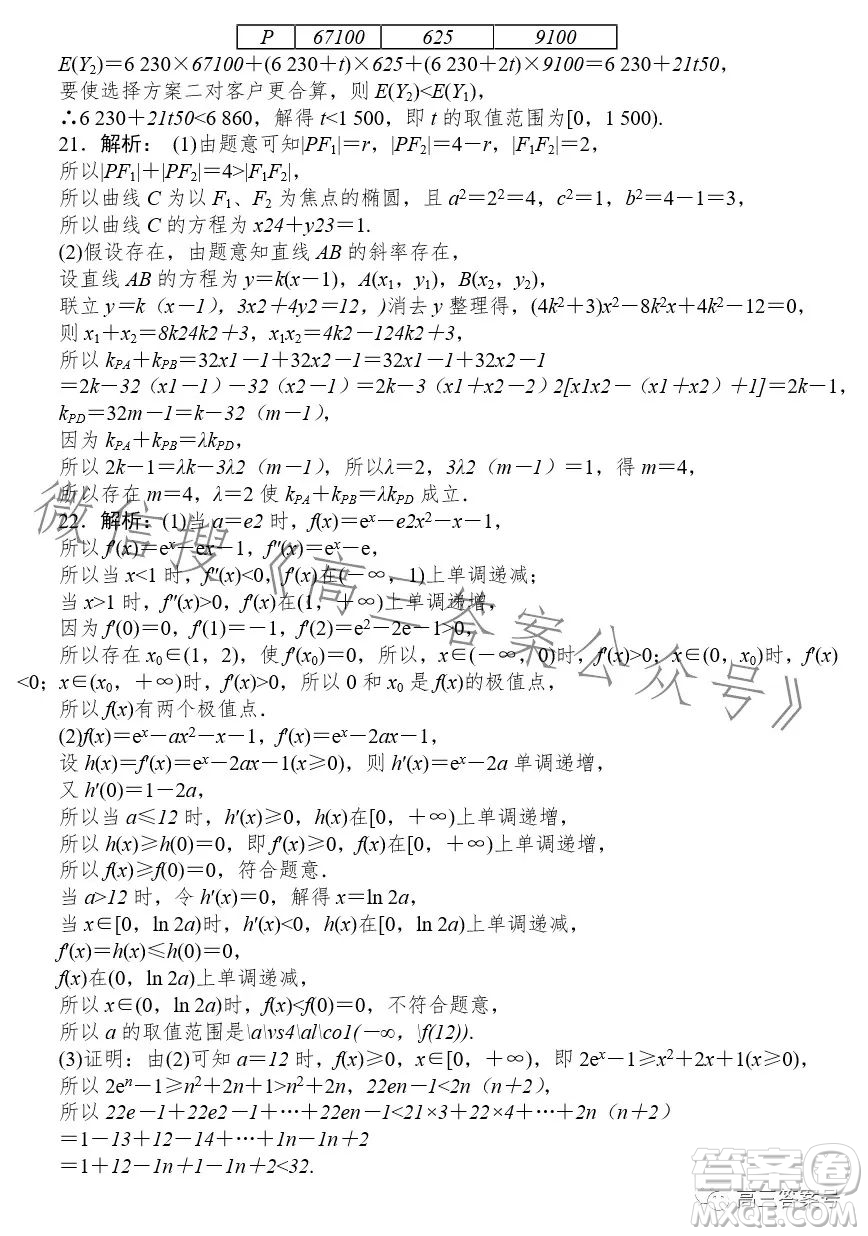 P 67100 625 9100
E(Y₂)=6 230×67100+(6 230+t)×625+(6 230+2t)×9100=6 230+21t50，
要使选择方案二对客户更合算，则 E(Y₂)<E(Y₁)，
∴6 230+21t50<6 860，解得 t<1 500，即 t 的取值范围为[0，1 500).
21．解析： (1)由题意可知|PF₁|=r，|PF₂|=4－r，|F₁F₂|=2，
所以|PF₁|＋|PF₂|=4>|F₁F₂|，
所以曲线 C 为以 F₁、F₂ 为焦点的椭圆，且 a²=2²=4，c²=1，b²=4－1=3，
所以曲线 C 的方程为 x24＋y23=1.
(2)假设存在，由题意知直线 AB 的斜率存在，
设直线 AB 的方程为 y=k(x－1)，A(x₁，y₁)，B(x₂，y₂)，
联立 y=k（x－1），3x2＋4y2=12，)消去 y 整理得，(4k²＋3)x²－8k²x＋4k²－12=0，
则 x₁＋x₂=8k24k2＋3，x₁x₂=4k2－124k2＋3，
所以 kPA＋kPB=32x1－1＋32x2－1=32x1－1＋32x2－1
=2k－32（x1－1）－32（x2－1）=2k－3（x1＋x2－2）2[x1x2－（x1＋x2）＋1]=2k－1，
kPD=32m－1=k－32（m－1），
因为 kPA＋kPB=λkPD，
所以 2k－1=λk－3λ2（m－1），所以λ=2，3λ2（m－1）=1，得 m=4，
所以存在 m=4，λ=2 使 kPA＋kPB=λkPD 成立．
22．解析：(1)当 a=e2 时，f(x)=eˣ－e2x²－x－1，
所以 f′(x)=eˣ－ex－1，f″(x)=eˣ－e，
所以当 x<1 时，f″(x)<0，f′(x)在(－∞，1)上单调递减；
当 x>1 时，f″(x)>0，f′(x)在(1，＋∞)上单调递增，
因为 f′(0)=0，f′(1)=－1，f′(2)=e²－2e－1>0，
所以存在 x₀∈(1，2)，使 f′(x₀)=0，所以，x∈(－∞，0)时，f′(x)>0；x∈(0，x₀)时，f′(x)
<0；x∈(x₀，＋∞)时，f′(x)>0，所以 0 和 x₀ 是 f(x)的极值点，
所以 f(x)有两个极值点．
(2)f(x)=eˣ－ax²－x－1，f′(x)=eˣ－2ax－1，
设 h(x)=f′(x)=eˣ－2ax－1(x≥0)，则 h′(x)=eˣ－2a 单调递增，
又 h′(0)=1－2a，
所以当 a≤12 时，h′(x)≥0，h(x)在[0，＋∞)上单调递增，
所以 h(x)≥h(0)=0，即 f′(x)≥0，f(x)在[0，＋∞)上单调递增，
所以 f(x)≥f(0)=0，符合题意．
当 a>12 时，令 h′(x)=0，解得 x=ln 2a，
当 x∈[0，ln 2a)时，h′(x)<0，h(x)在[0，ln 2a)上单调递减，
f′(x)=h(x)≤h(0)=0，
f(x)在(0，ln 2a)上单调递减，
所以 x∈(0，ln 2a)时，f(x)<f(0)=0，不符合题意，
所以 a 的取值范围是\a\vs4\al\co1(－∞，\f(12)).
(3)证明：由(2)可知 a=12 时，f(x)≥0，x∈[0，＋∞)，即 2eˣ－1≥x²＋2x＋1(x≥0)，
所以 2eⁿ－1≥n²＋2n＋1>n²＋2n，22en－1<2n（n＋2），
所以 22e－1＋22e2－1＋…＋22en－1<21×3＋22×4＋…＋2n（n＋2）
=1－13＋12－14＋…＋1n－1n＋2
=1＋12－1n＋1－1n＋2<32.
微信搜《高三答案公众号》
答案圈
高三答案号
MXQE.COM